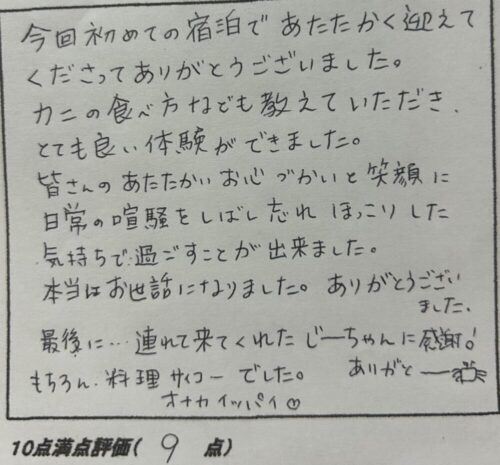 今回初めての宿泊であたたかく迎えて
くださってありがとうございました。
カニの食べ方なども教えていただき、
とても良い体験ができました。
皆さんのあたたかいお心づかいと笑顔に
日常の喧騒をしばし忘れほっこりした
気持ちで過ごすことが出来ました。
本当はお世話になりました。ありがとうござい
ました、
最後に…連れて来てくれたじーちゃんに感謝!
ありがとー
もちろん、料理サイコーでした。
オナカイッパイ♡
10点満点評価( 9 点)